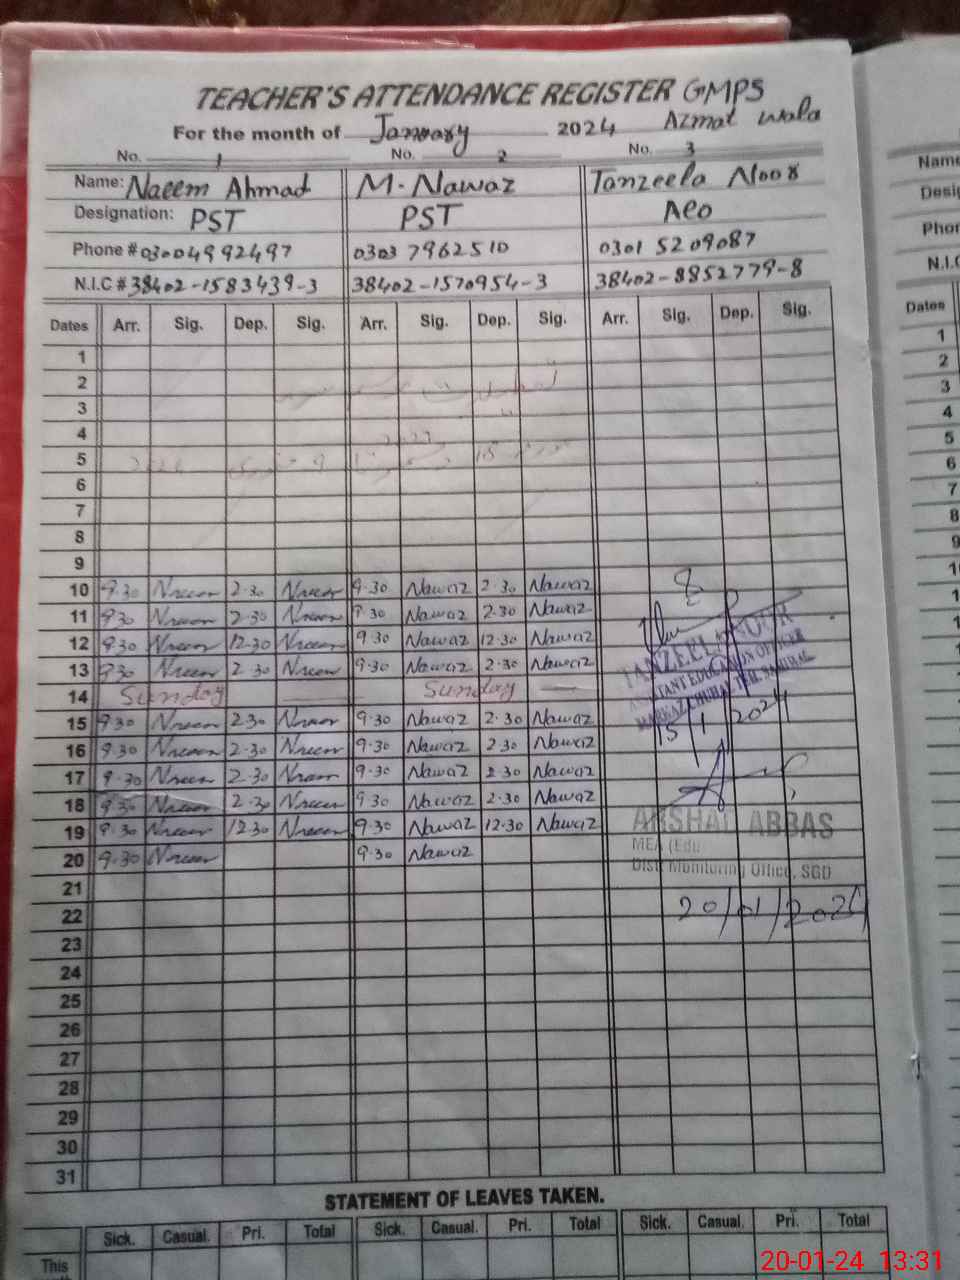 TEACHER'S ATTENDANCE REGISTER GMPS
For the month of January 2024 Azmat wala
No. 1 No. 2 No. 3
Name: Naeem Ahmad M. Nawaz Tanzeela Noor Name
Designation: PST PST AEO
Phone # 03004992497 0303 7962510 0301 5209087
N.I.C # 38402-1583439-3 38402-1570954-3 38402-8852779-8 N.I.C
Dates Arr. Sig. Dep. Sig. Arr. Sig. Dep. Sig. Arr. Sig. Dep. Sig. Dates
1 1
2 2
3 3
4 4
5 5
6 6
7 7
8 8
9 9
10 9.30 Naeem 2.30 Naeem 9.30 Nawaz 2.30 Nawaz
11 9.30 Naeem 2.30 Naeem 9.30 Nawaz 2.30 Nawaz
12 9.30 Naeem 12.30 Naeem 9.30 Nawaz 12.30 Nawaz
13 9.30 Naeem 2.30 Naeem 9.30 Nawaz 2.30 Nawaz
14 Sunday Sunday
TANZEELA NOOR
ASSISTANT EDUCATION OFFICER
15 9.30 Naeem 2.30 Naeem 9.30 Nawaz 2.30 Nawaz 15/1/2024
16 9.30 Naeem 2.30 Naeem 9.30 Nawaz 2.30 Nawaz
17 9.30 Naeem 2.30 Naeem 9.30 Nawaz 2.30 Nawaz
18 9.30 Naeem 2.30 Naeem 9.30 Nawaz 2.30 Nawaz
19 9.30 Naeem 12.30 Naeem 9.30 Nawaz 12.30 Nawaz ARSHAD ABBAS
20 9.30 Naeem 9.30 Nawaz MEA (Edu
Distt. Monitoring Office, SGD
21
22 20/01/2024
23
24
25
26
27
28
29
30
31
STATEMENT OF LEAVES TAKEN.
Sick. Casual. Pri. Total Sick. Casual. Pri. Total Sick. Casual. Pri. Total
This
20-01-24 13:31